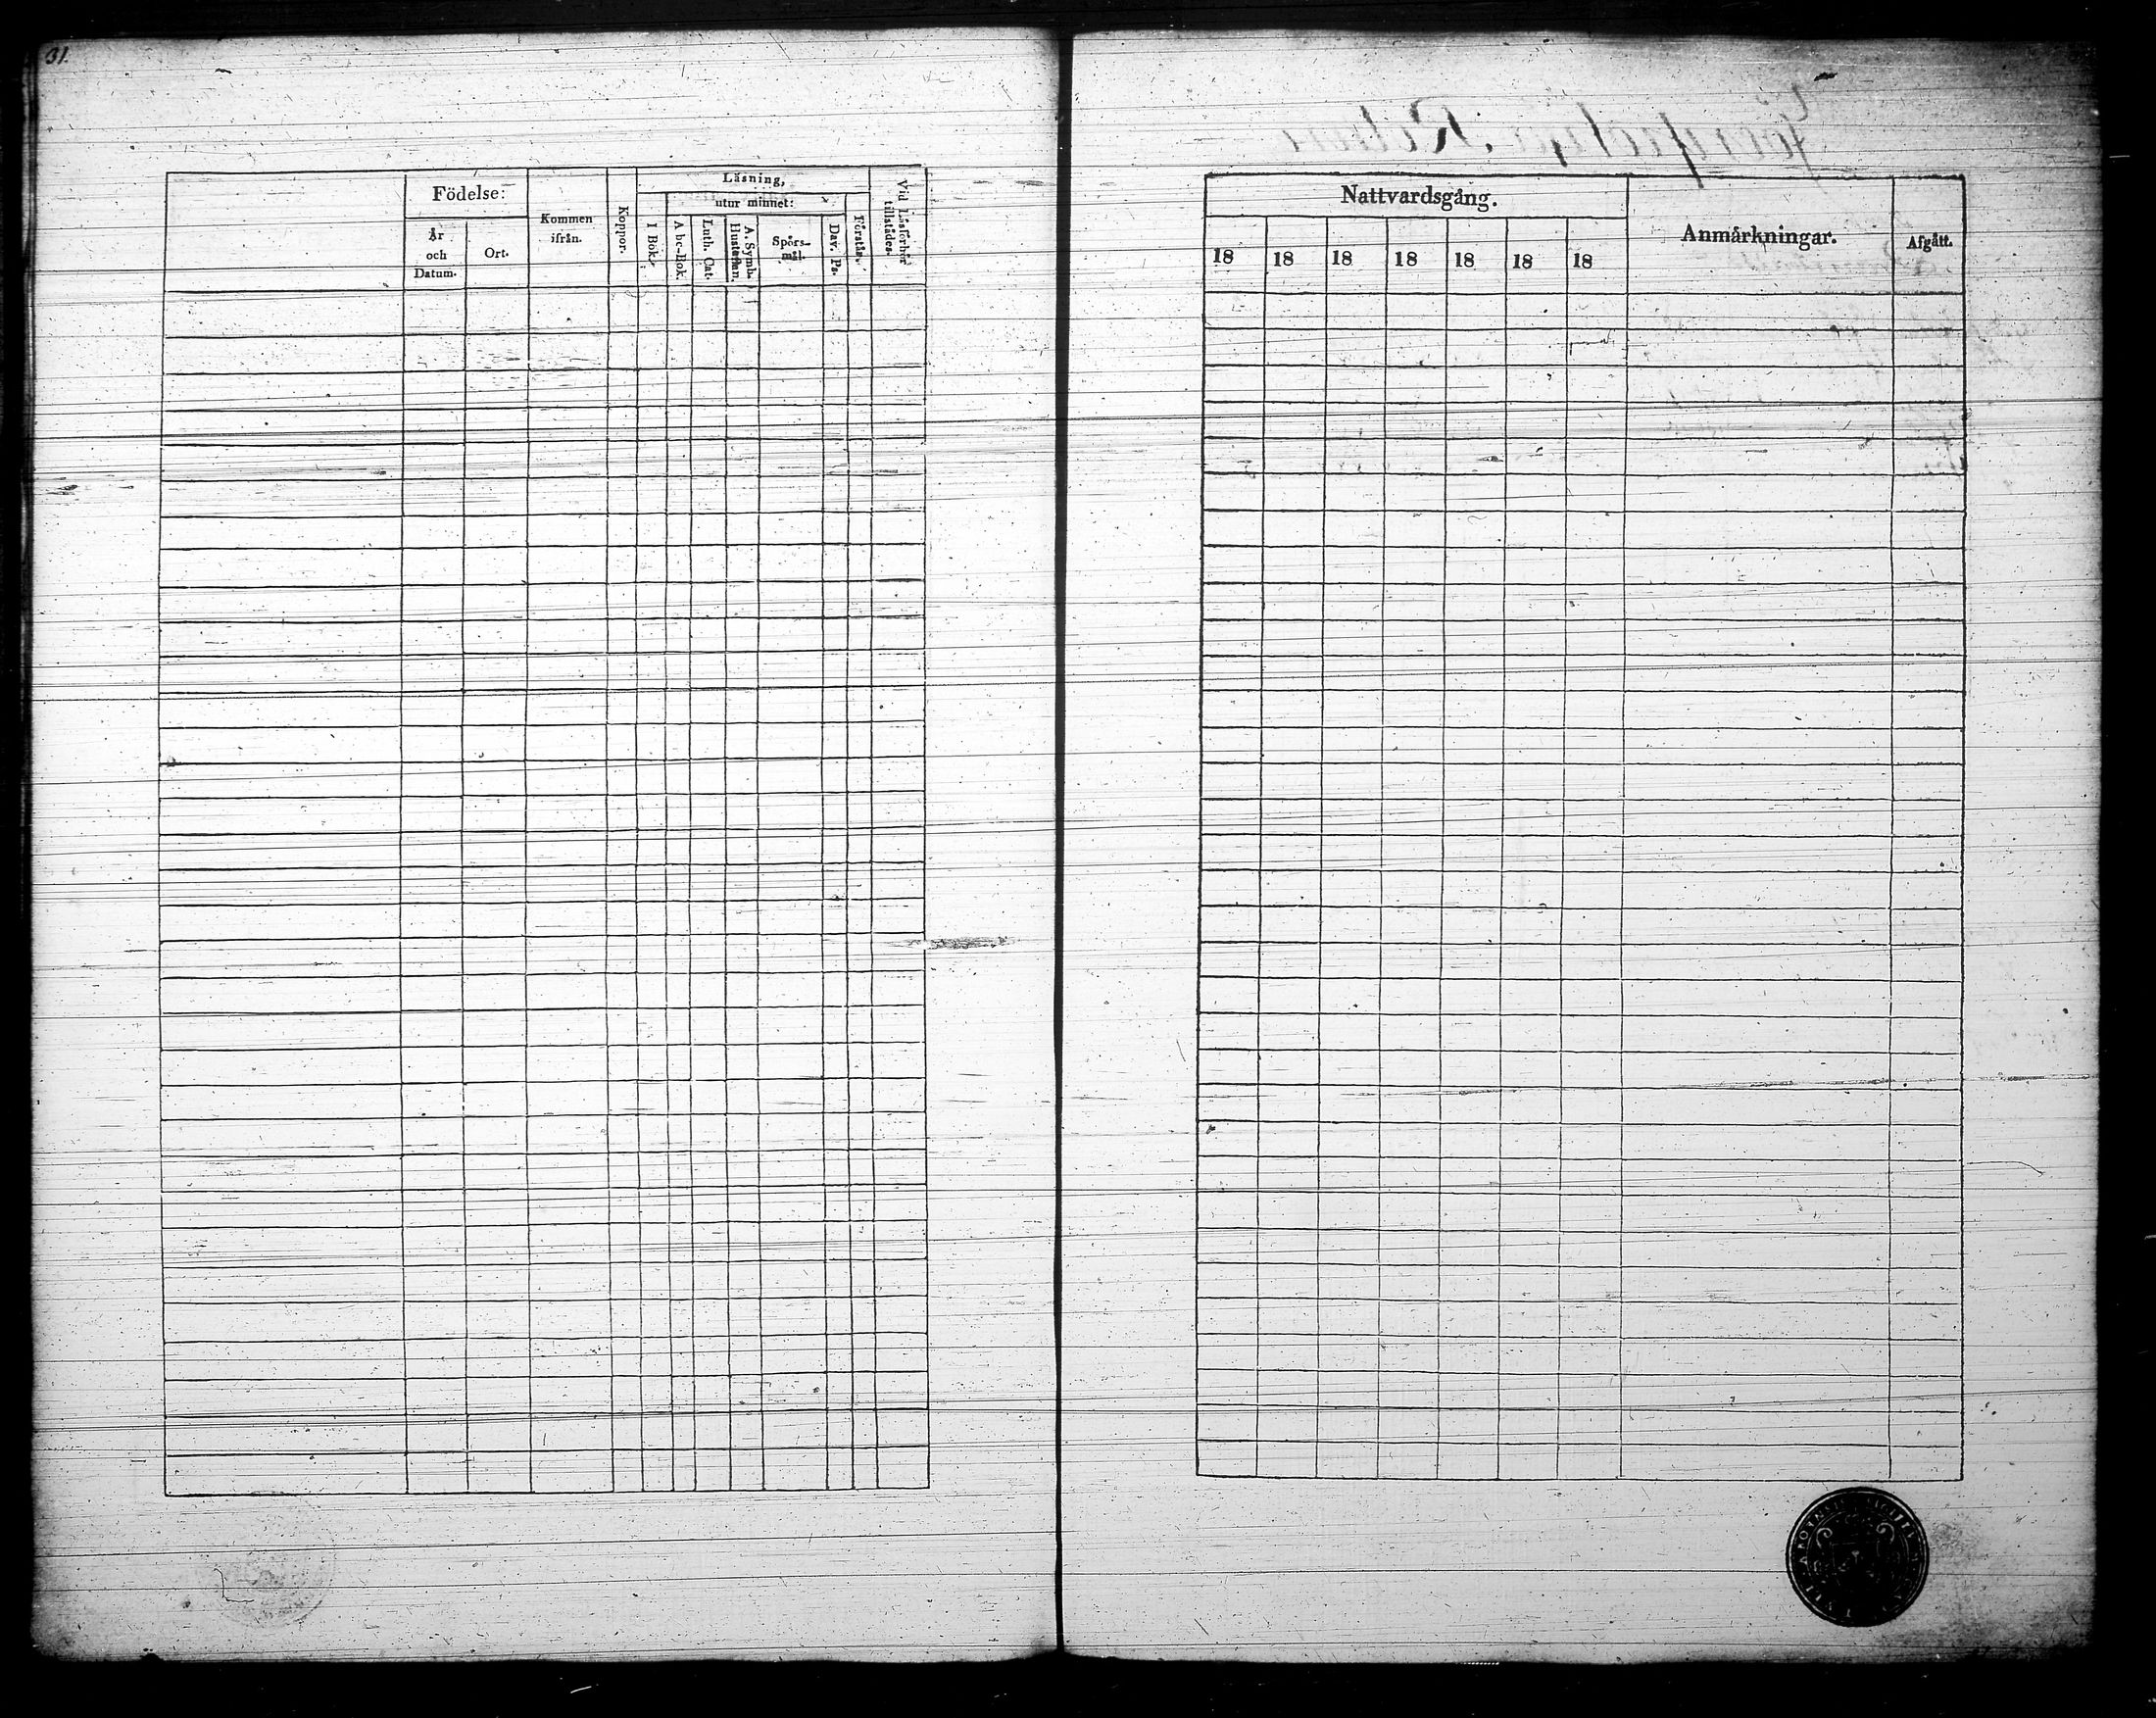 31.
Födelse:
År
och
Datum.
Ort.
Kommen
ifrån.
Koppor.
Läsning,
utur minnet:
I Bok.
A bc-Bok.
Luth. Cat.
A. Symb.
Hustaflan.
Spörs-
mål.
Dav. Ps.
Förstår.
Vid Läsförhör
tillstådes.
Nattvardsgång.
18 18 18 18 18 18 18
Anmårkningar.
Afgått.